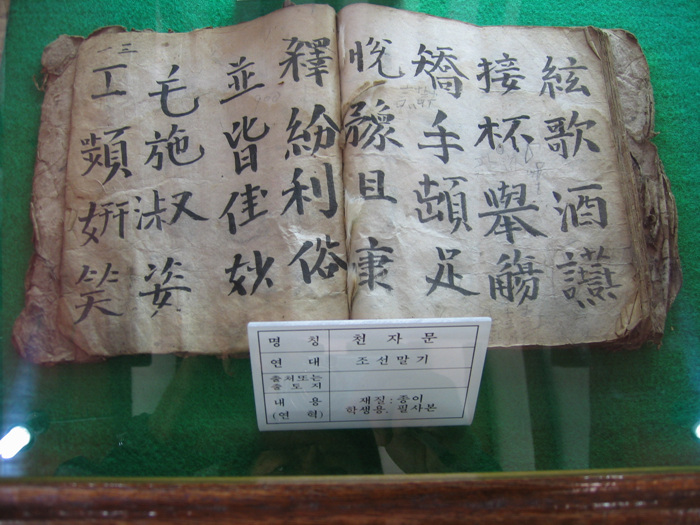 絃歌酒讌
接杯舉觴
矯手頓足
悅豫且康
釋紛利俗
並皆佳妙
毛施淑姿
工嚬姸笑
명 칭 천 자 문
연 대 조 선 말 기
출처또는
출 토 지
내 용 재질 : 종이
(연 혁) 학생용, 필사본